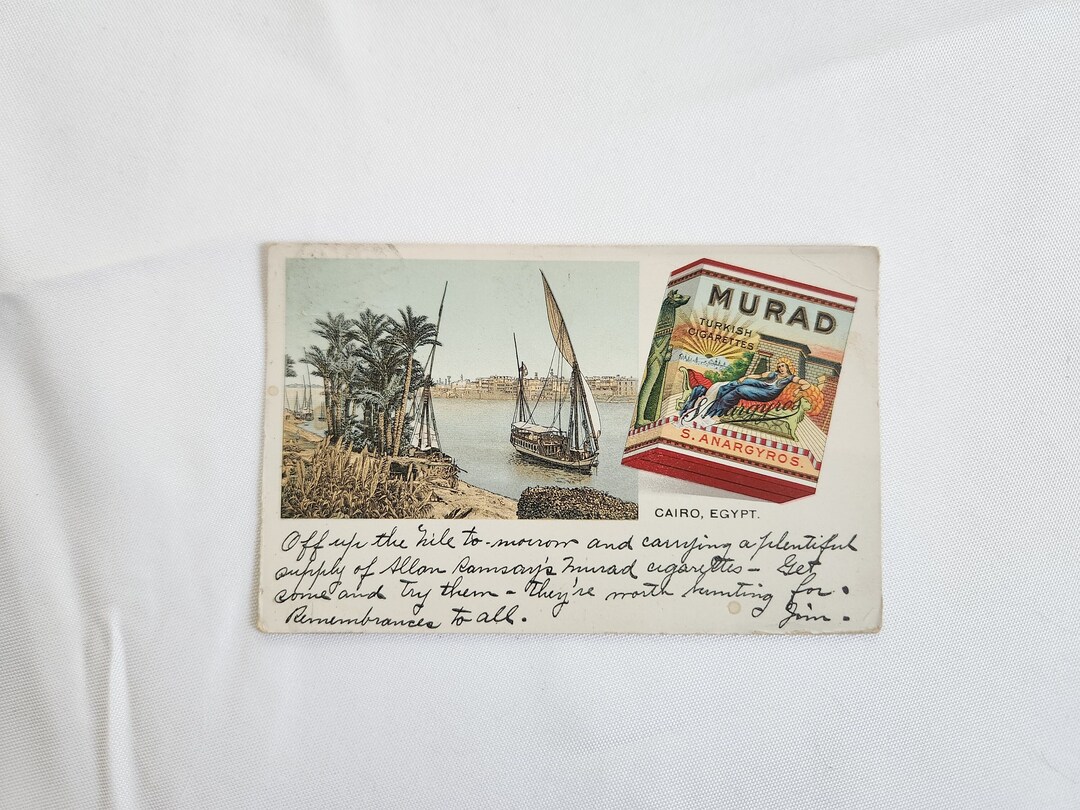 MURAD
TURKISH
CIGARETTES
S. Anargyros
S. ANARGYROS.
CAIRO, EGYPT.
Off up the Nile to-morrow and carrying a plentiful
supply of Allan Ramsay's Murad cigarettes - Get
some and try them - They're worth hunting for.
Remembrances to all. Jim.